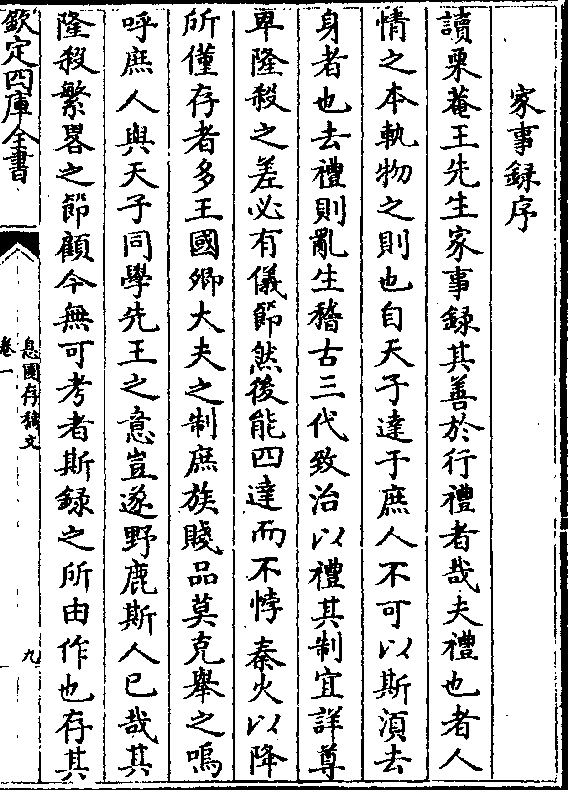 家事録序
讀栗菴王先生家事録其善於行禮者哉夫禮也者人
情之本軌物之則也自天子達于庶人不可以斯湏去
身者也去禮則亂生稽古三代致治以禮其制宜詳尊
卑隆殺之差必有儀節然後能四達而不悖秦火以降
所僅存者多王國卿大夫之制庶族賤品莫克舉之嗚
呼庶人與天子同學先王之意豈遂野鹿斯人已哉其
隆殺繁畧之節顧今無可考者斯録之所由作也存其
欽定四庫全書
息園存稿文
卷一
九